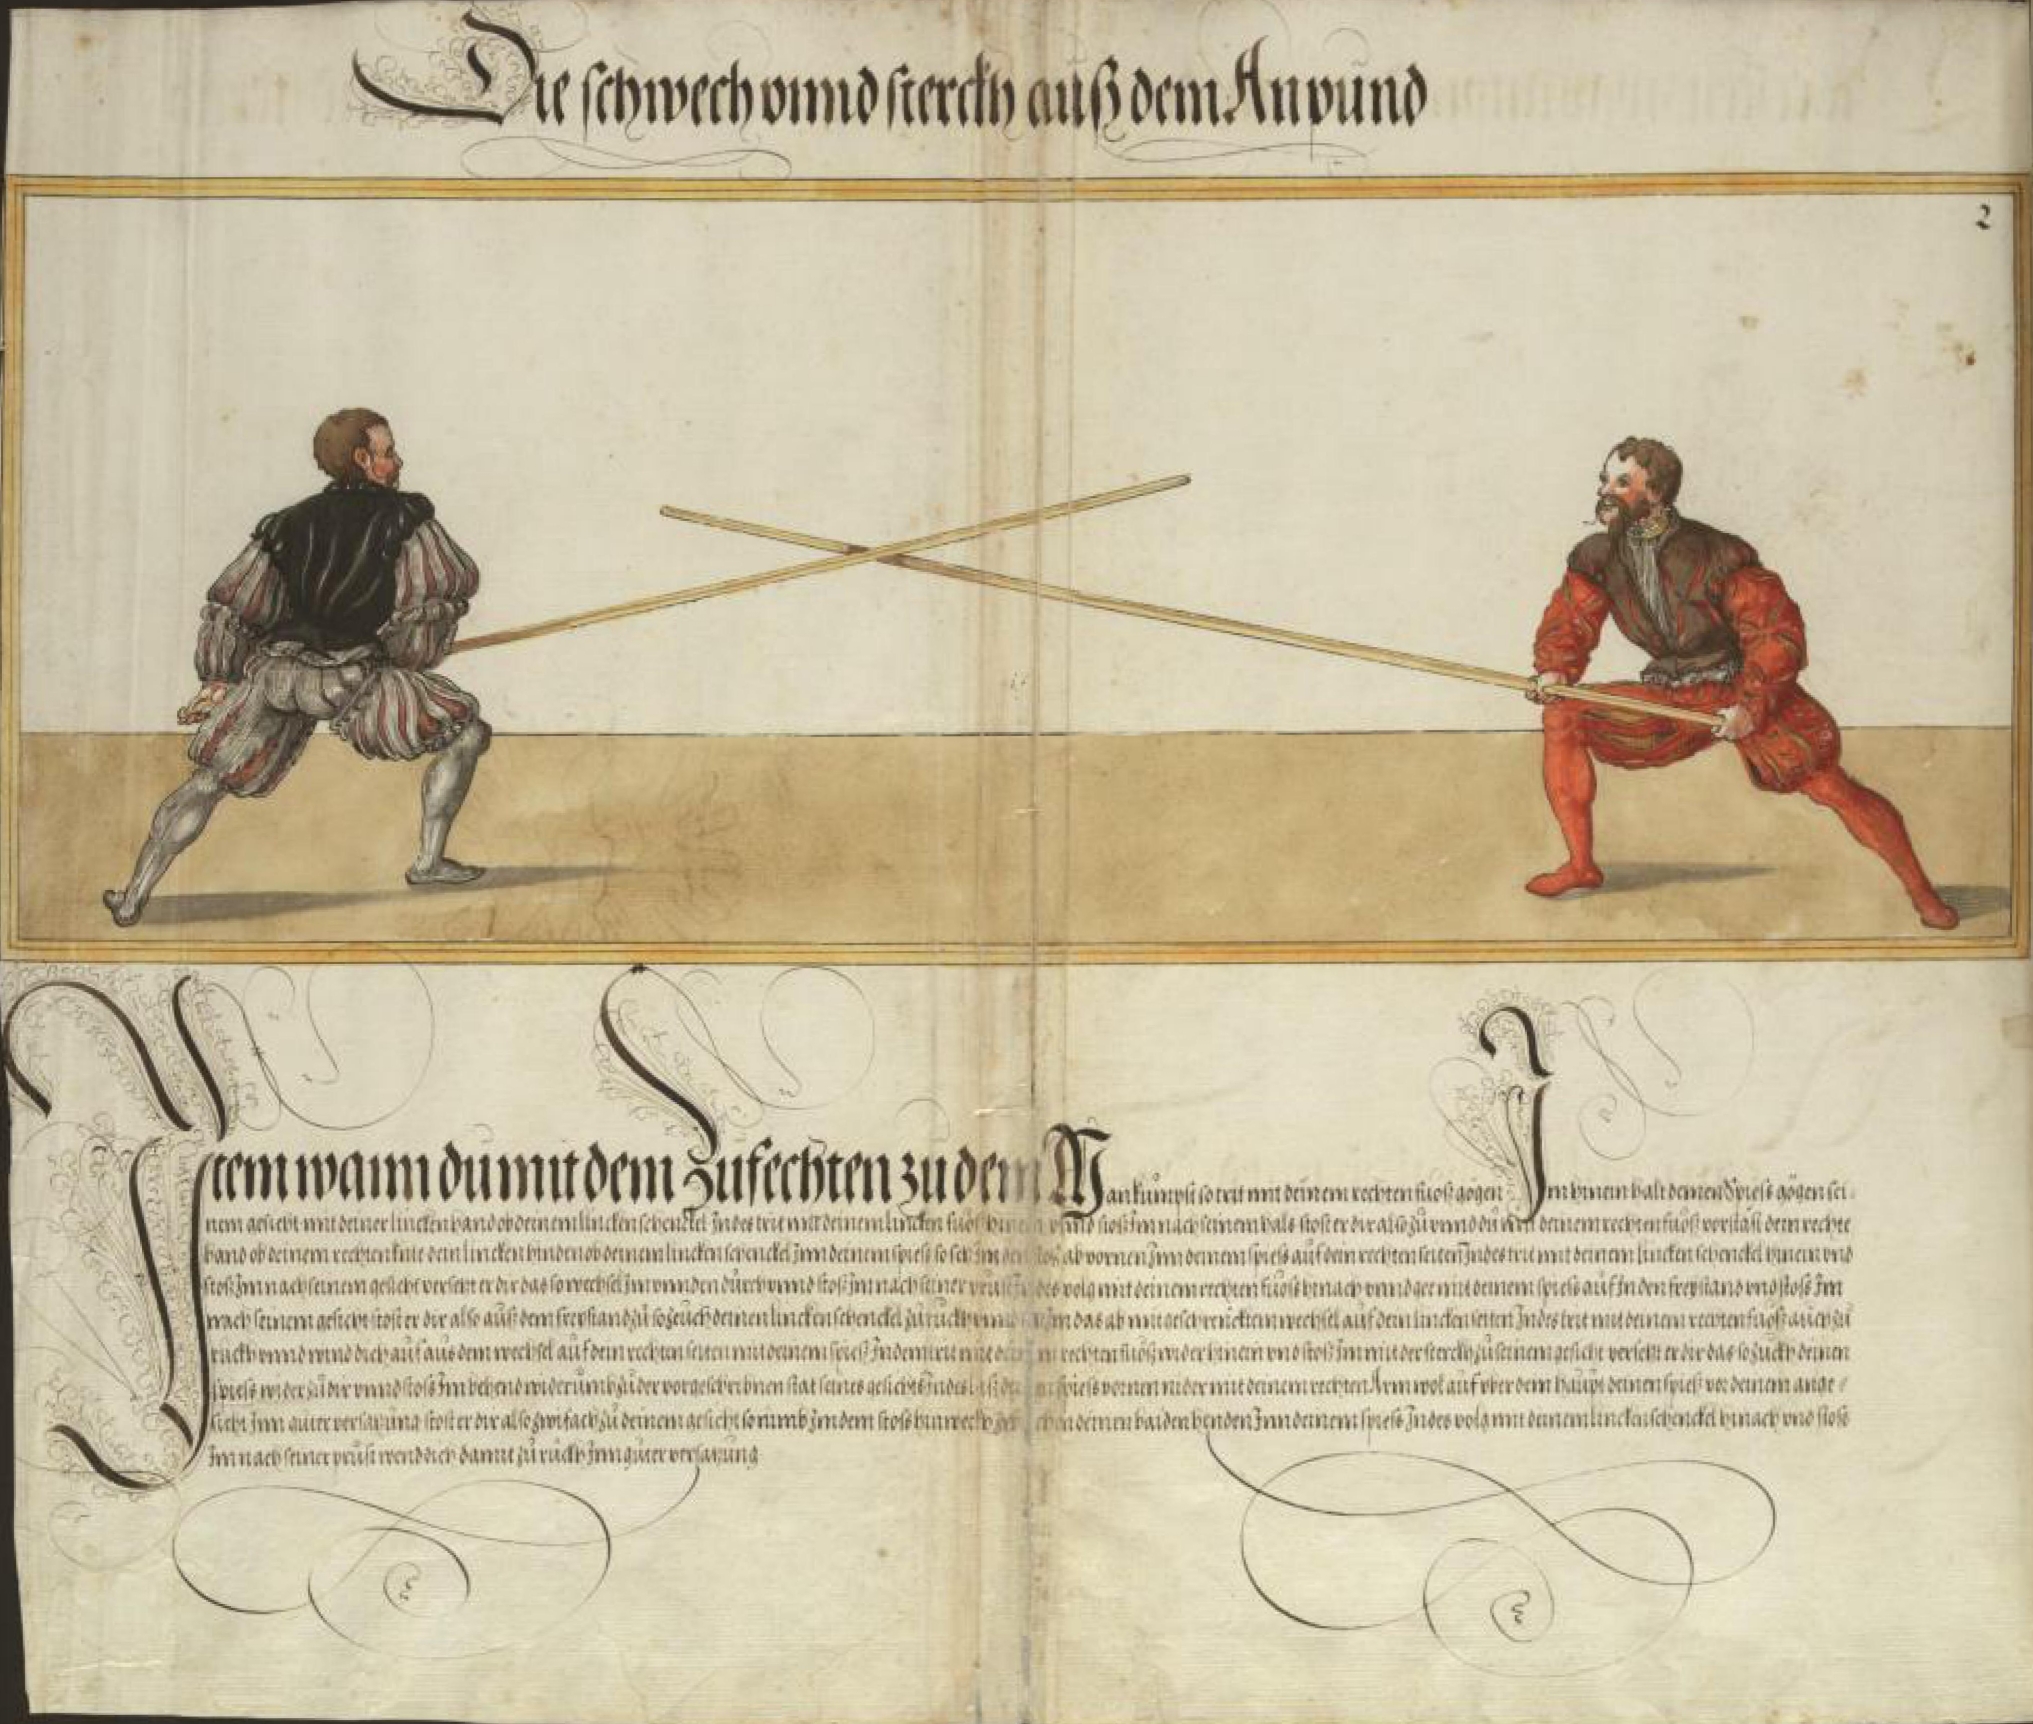 Die schwech vnnd sterckh auß dem Anpund
2
Item wann du mit dem Zufechten zu dem Man kumpst so trit mit deinem rechten fuoß gögen Im hinein halt deinen Spiess gögen sei-
nem gesicht mit deiner lincken hand ob deinem lincken schenckel Indes trit mit deinem lincken fuoß hinein vnnd stoß Im nach seinem hals stost er dir also zů vnnd du mit deinem rechten fuoß vorstast dein rechte
hand ob deinem rechten knie dein lincken hinden ob deinem lincken schenckel Inn deinem spiess so setz Im den stoß ab vornen Inn deinem spiess auf dein rechten seiten Indes trit mit deinem lincken schenckel hinein vnd
stoß Im nach seinem gesicht versetzt er dir das so wechsel Im vnnden durch vnnd stoß Im nach seiner prust Indes volg mit deinem rechten fuoß hinach vnnd gee mit deinem spiess auf In den freystand vnd stoß Im
nach seinem gesicht stost er dir also auß dem freystand zů so zeuch deinen lincken schenckel zů ruckh vnnd Im das ab mit geschrencktem wechsel auf dein lincken seiten Indes trit mit deinem rechten fuoß auch zů
ruckh vnnd wind dich auf aus dem wechsel auf dein rechten seiten mit deinem spieß Indem trit mit deinem rechten fuoß wider hinein vnd stoß Im mit der sterckh zů seinem gesicht versetzt er dir das so zuckh deinen
spiess wider zů dir vnnd stoß Im behend widerumb zů der vorgeschribnen stat seines gesichts Indes spiess vornen nider mit deinem rechten Arm wol auf vber dem haupt deinen spieß vor deinem ange-
sicht Inn guter versatzung stost er dir also zwifach zů deinem gesicht so nimb Im dem stoß hinweckh zwischen deinen baiden henden Inn deinem spiess Indes volg mit deinem lincken schenckel hinach vnd stoß
Im nach seiner prust wend dich damit zů ruckh Inn guter versatzung